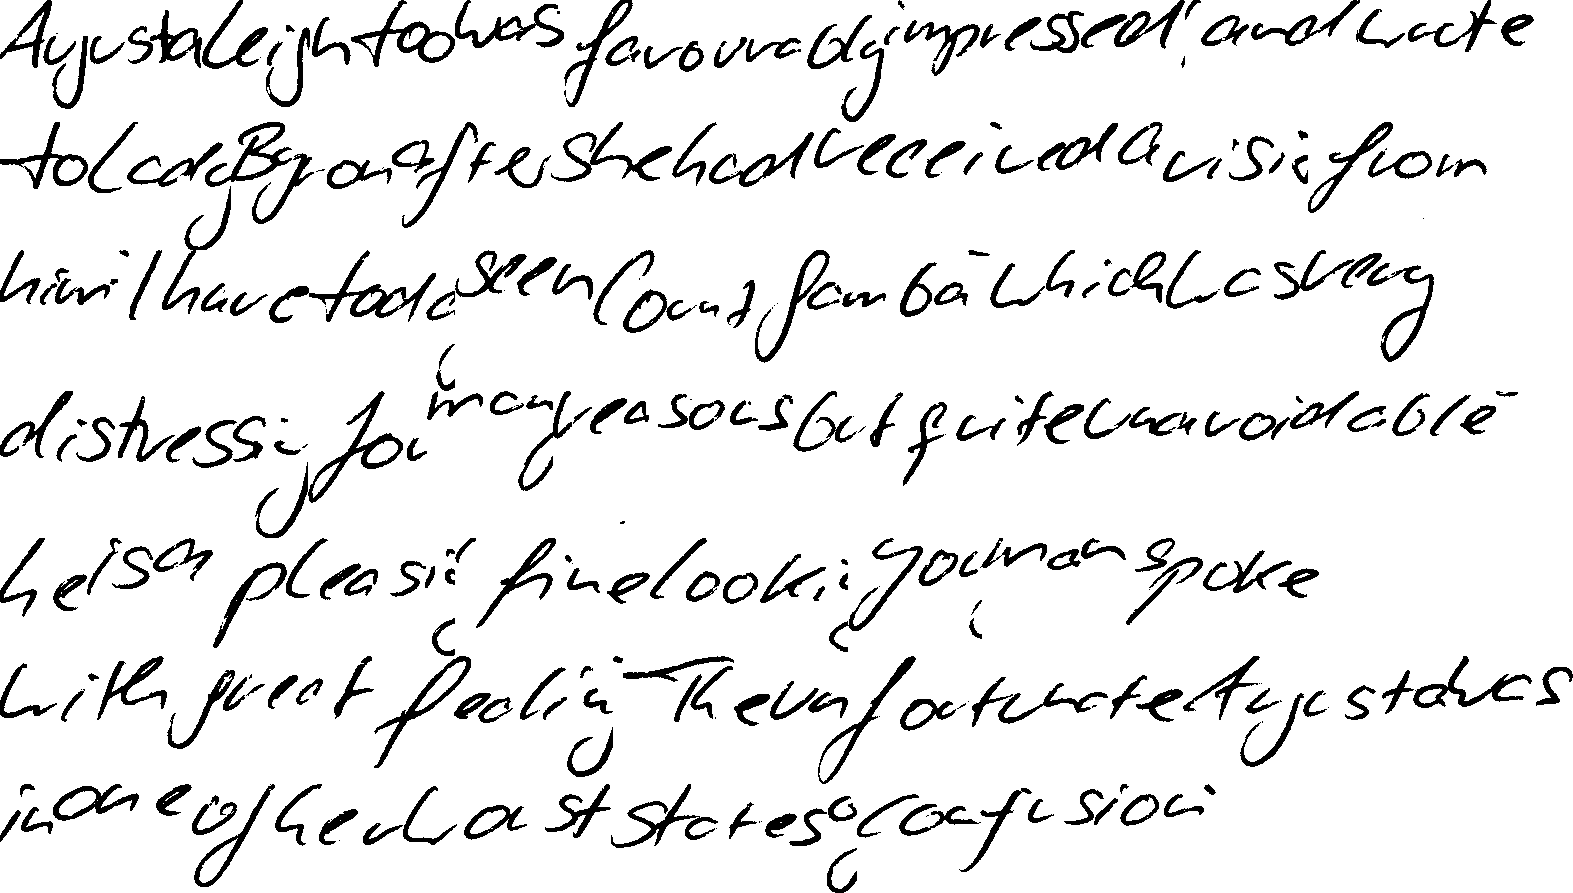 Augusta Leigh too was favourably impressed, and wrote
to Lady Byron after she had received a visit from
him: I have today seen Count Gamba which was very
distressing for many reasons but quite unavoidable
he is a pleasing, fine looking young man & spoke
with great feeling - The unfortunate Augusta was
in one of her worst states of confusion: